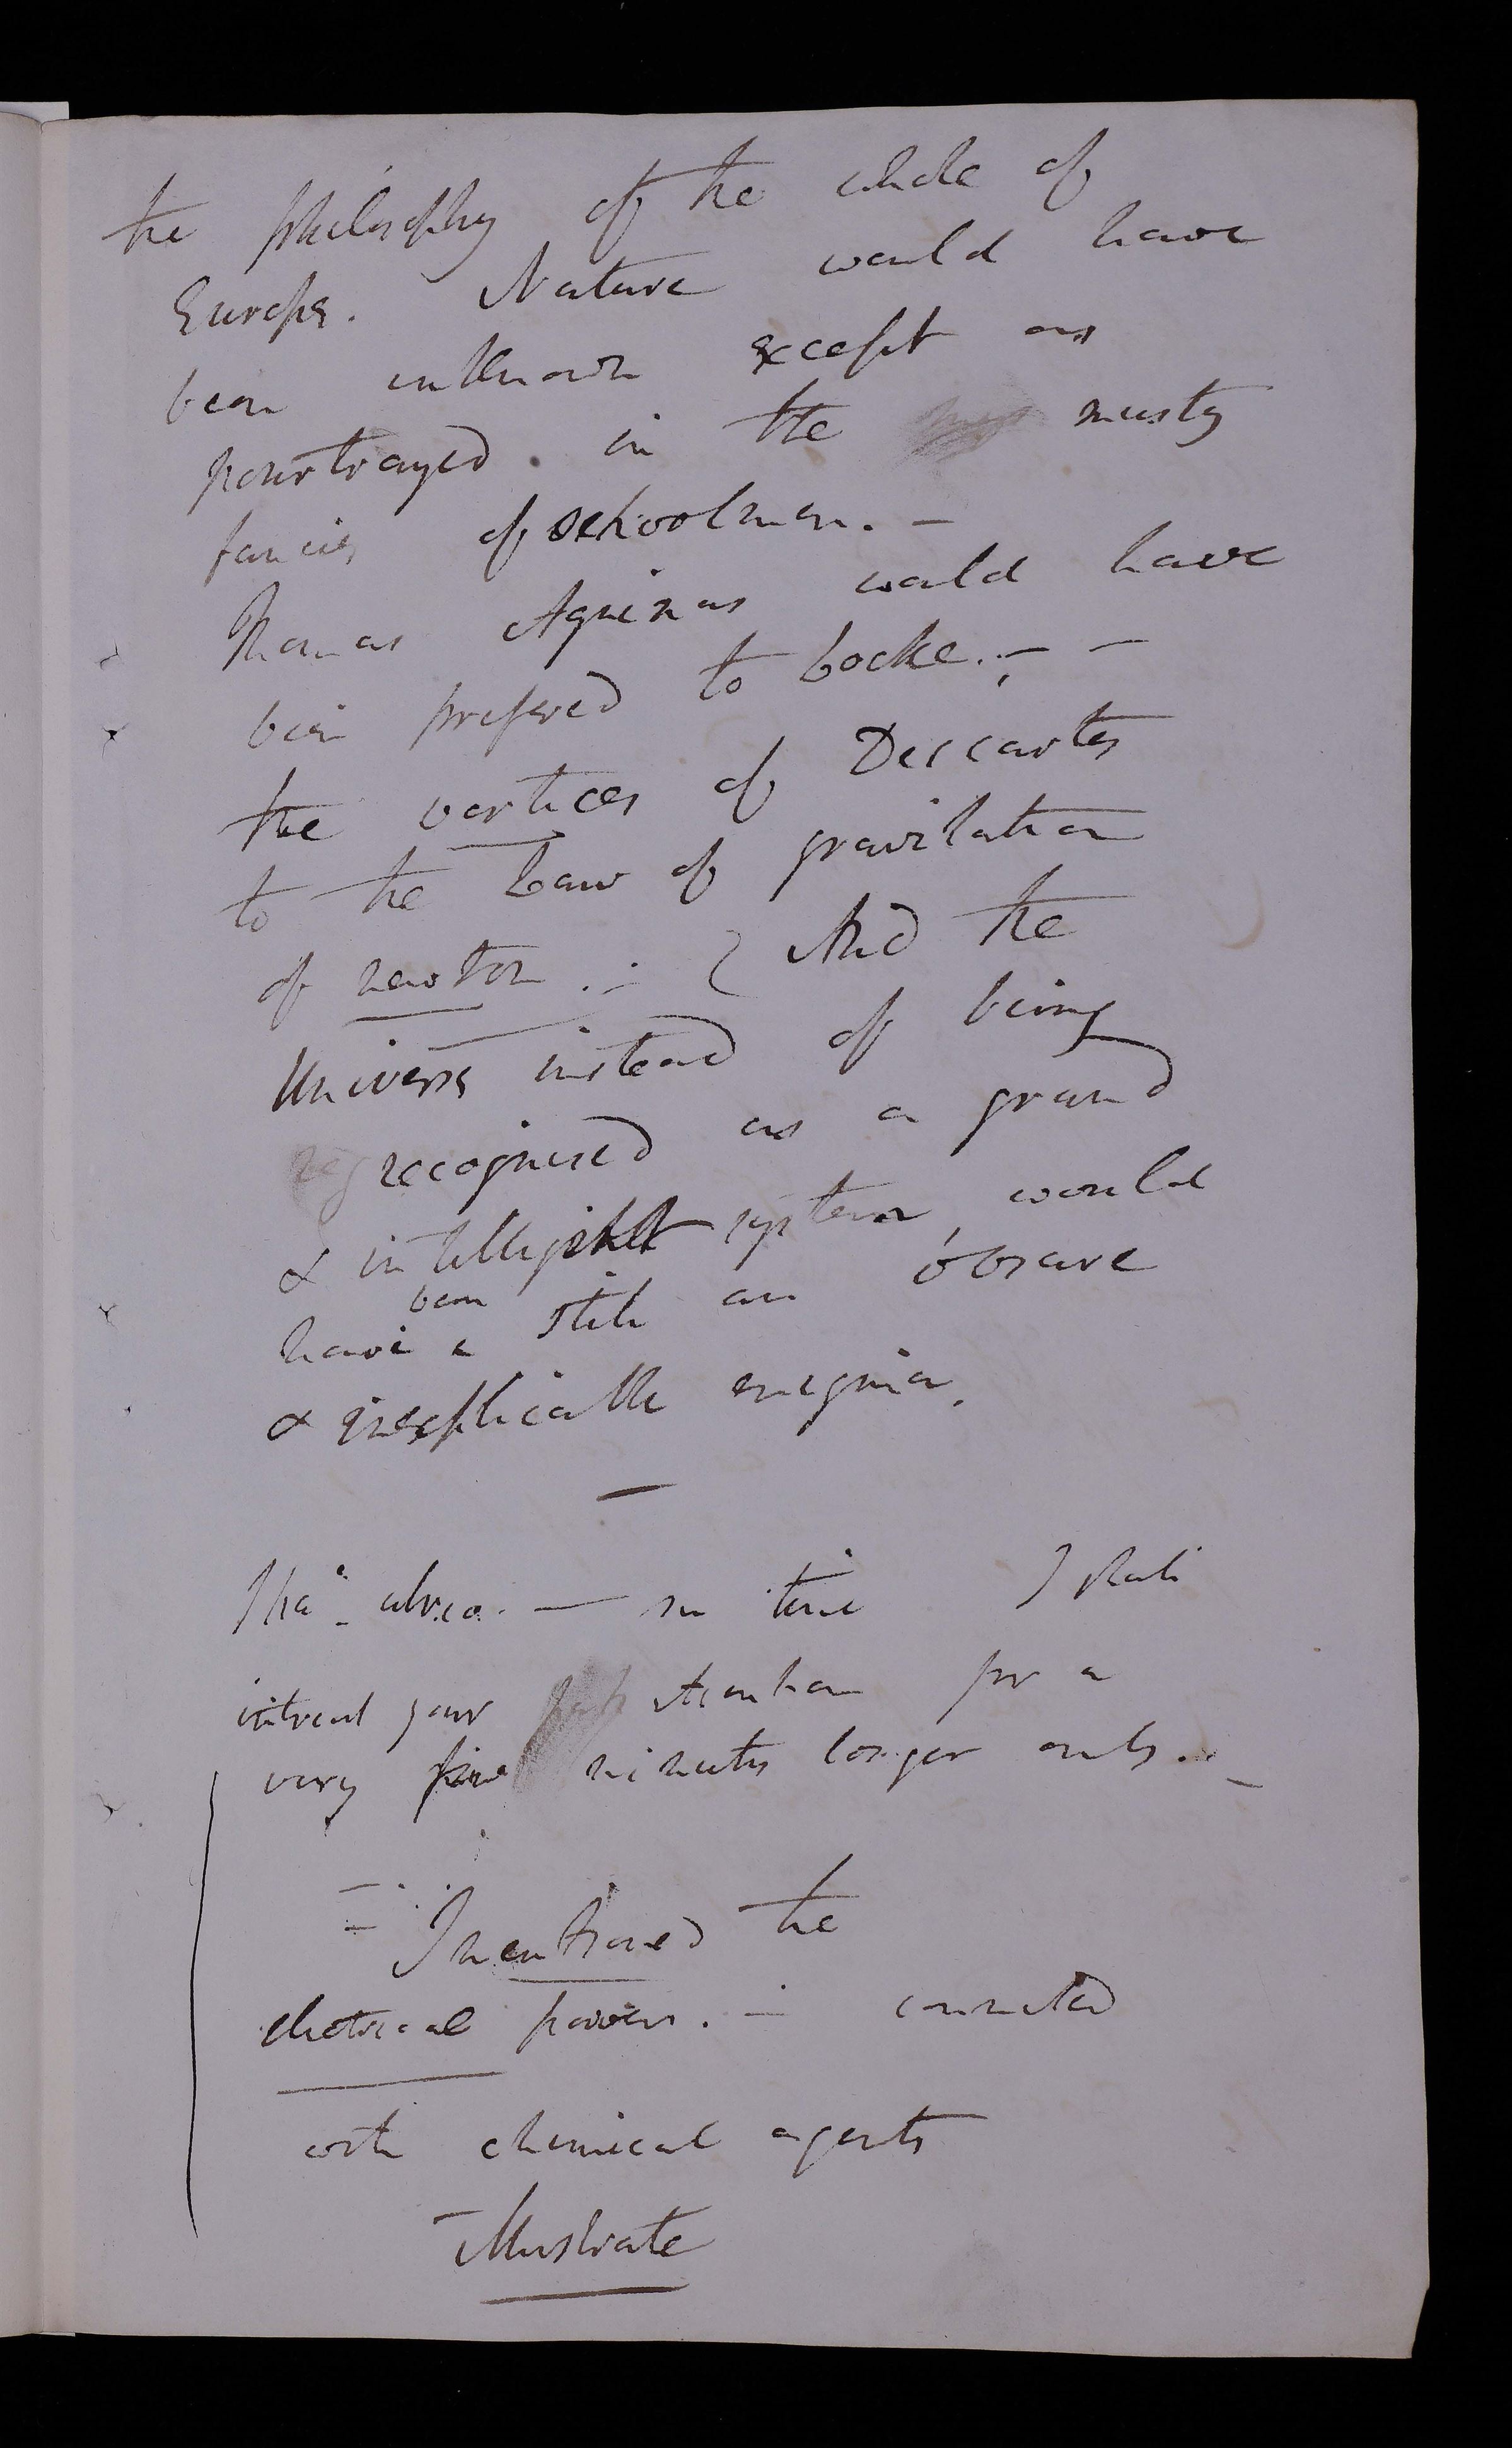 the philosophy of the whole of
Europe. Nature would have
been unknown except as
pourtrayed in the musty
fancies of schoolmen. –
Thomas Aquinas would have
been prefered to Locke. – –
the vortices of Descartes
to the Law of gravitation
of newton. – And the
Universe instead of being
recognised as a grand
& intelligible system, would
been
have still an obscure
& inexplicable enigma.
–
time I shall
intreat your attention for a
very few minutes longer only. –
I mentioned the
electrical powers. – connected
with chemical agents
– illustrate